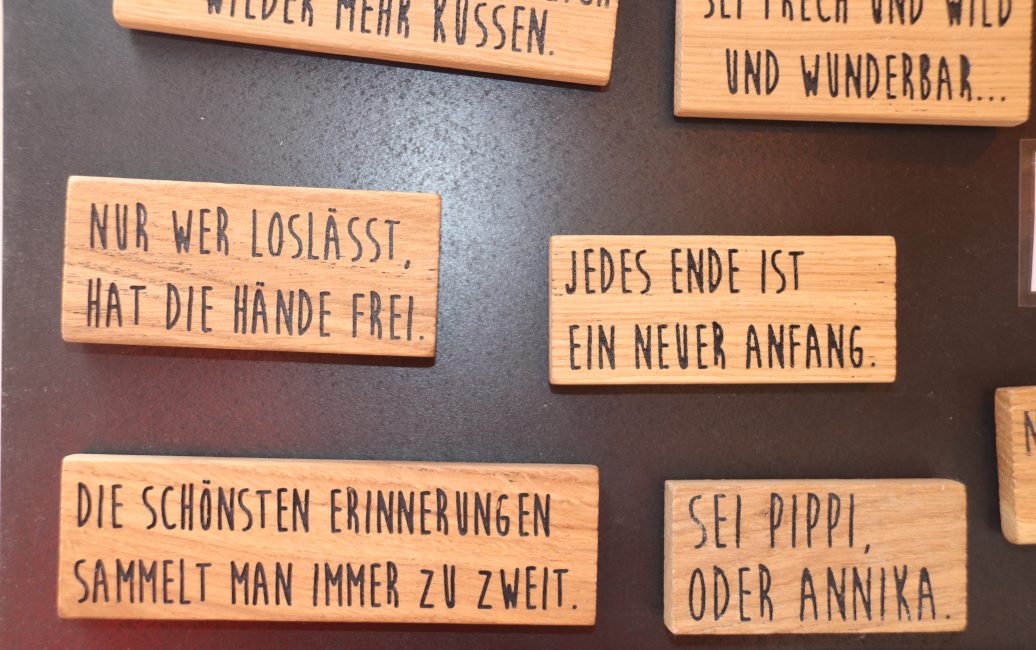 WIEDER MEHR KÜSSEN.
SEI FRECH UND WILD
UND WUNDERBAR...
NUR WER LOSLÄSST,
HAT DIE HÄNDE FREI.
JEDES ENDE IST
EIN NEUER ANFANG.
DIE SCHÖNSTEN ERINNERUNGEN
SAMMELT MAN IMMER ZU ZWEIT.
SEI PIPPI,
ODER ANNIKA.